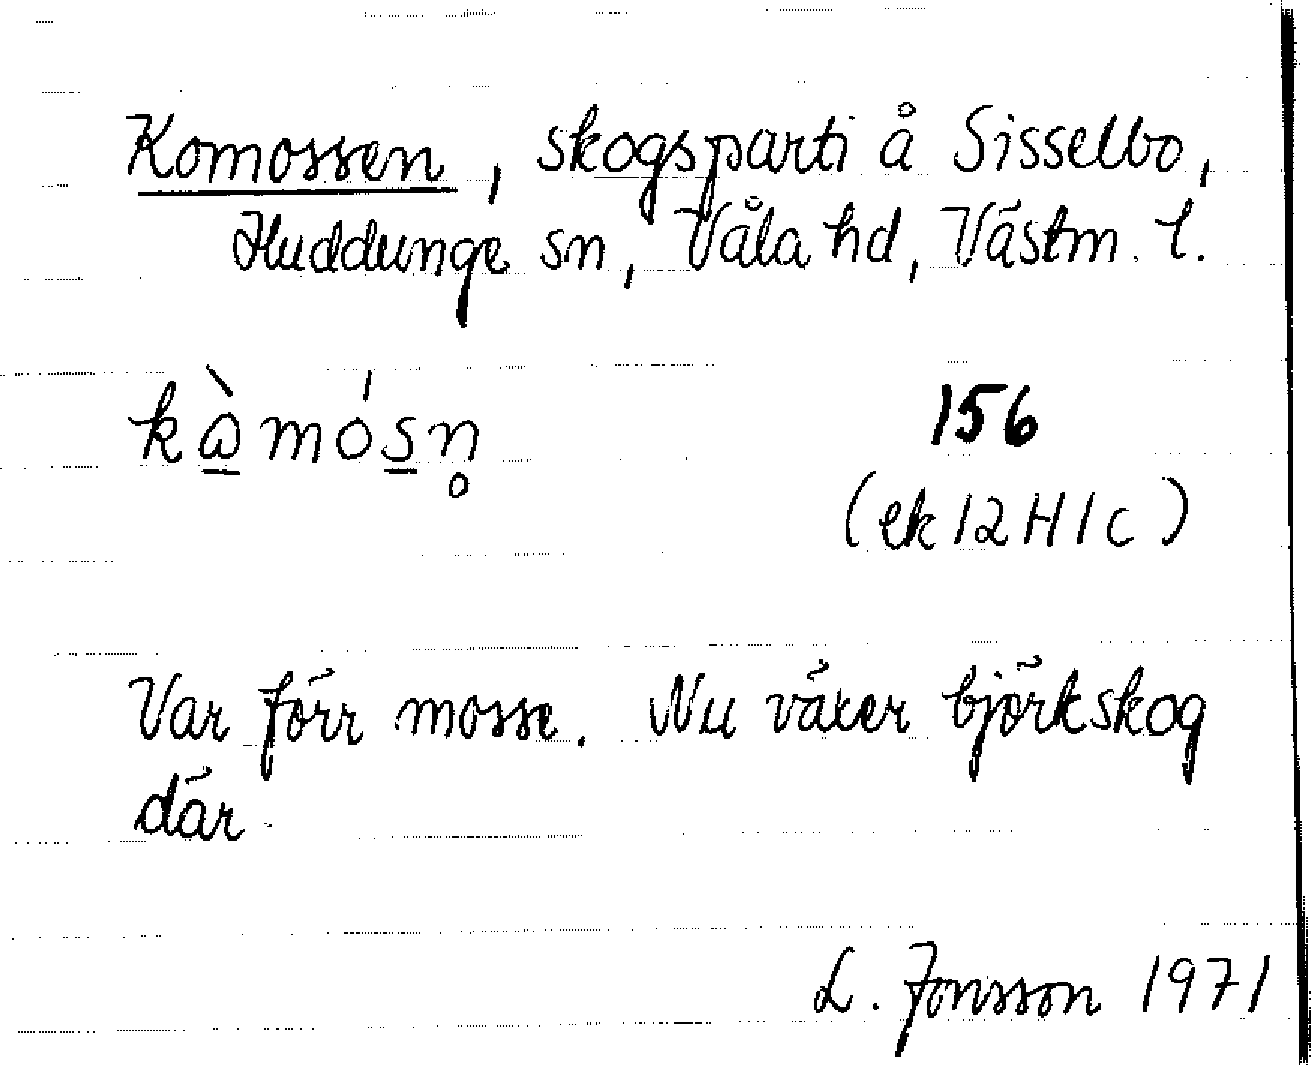 Komossen, skogsparti å Sisselbo,
Huddunge sn, Våla hd, Västm. l.
kⱥ̀mósn̥ 156
(ek 12 H 1 c)
Var förr mosse. Nu växer björkskog
där.
L. Jonsson 1971